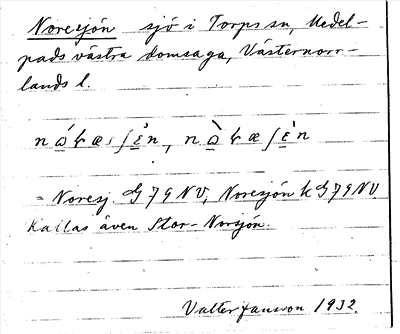 Noresjön sjö i Torps sn, Medel-
pads västra domsaga, Västernorr-
lands l.
= Noresj. G 79 NV, Noresjön k G 79 NV.
Kallas även Stor-Norsjön.
Valter Jansson 1932.